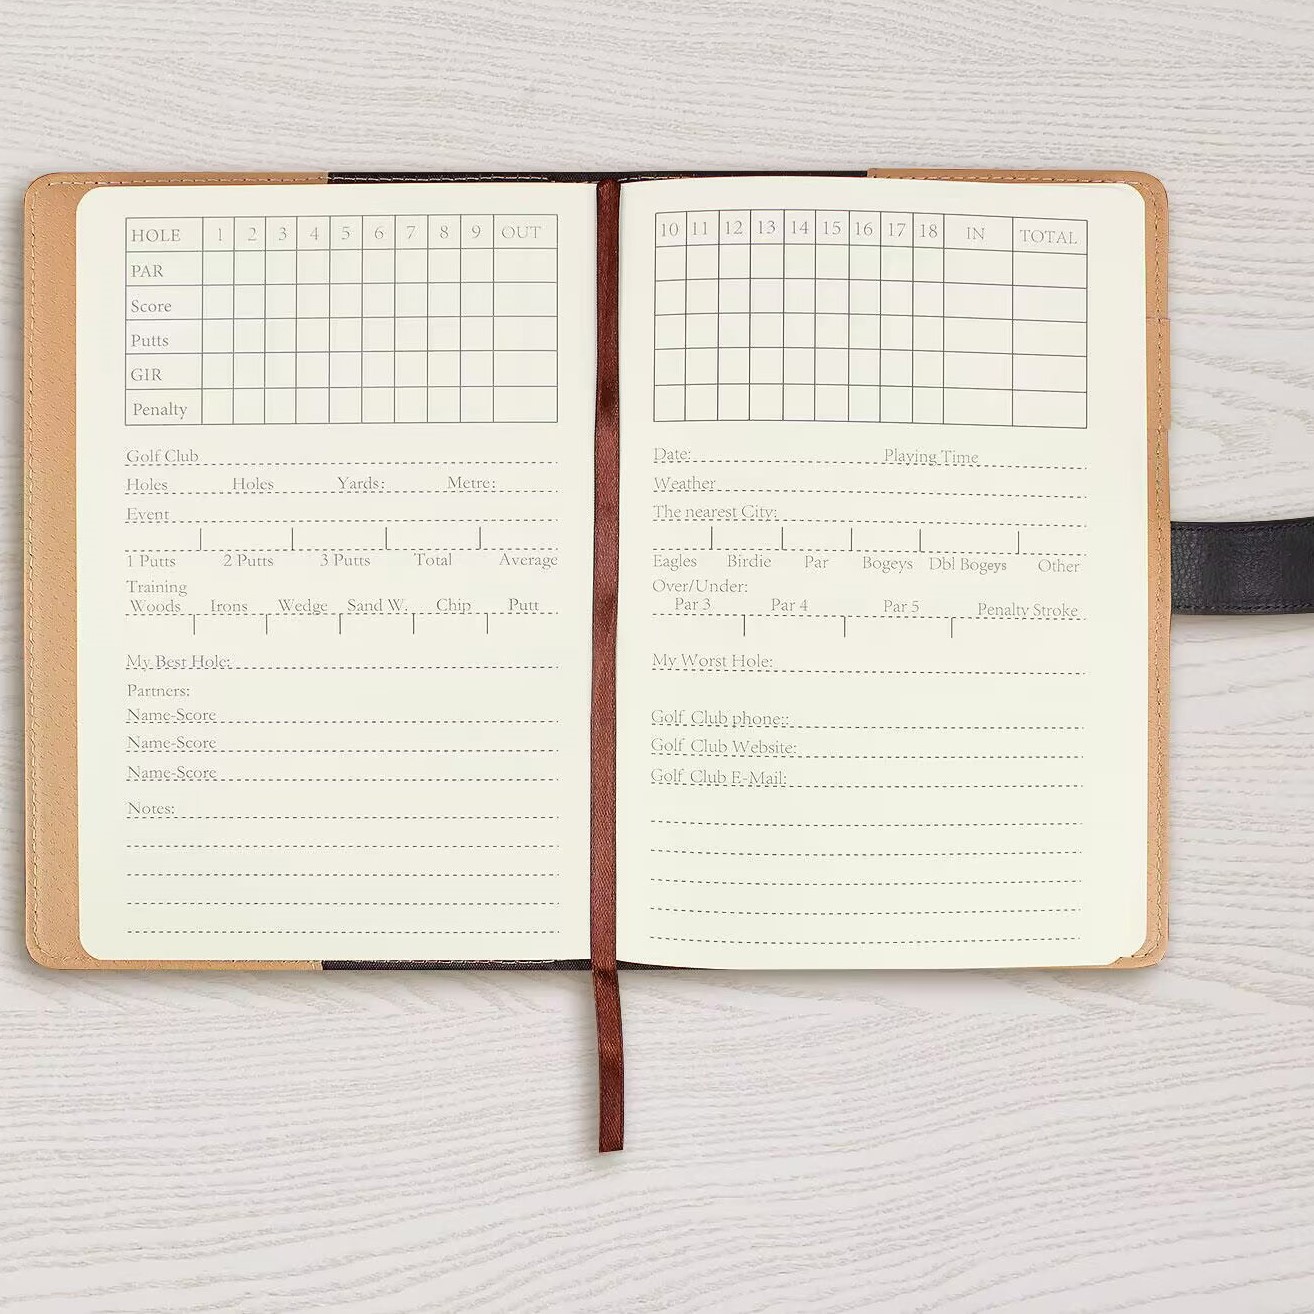 HOLE 1 2 3 4 5 6 7 8 9 OUT
PAR
Score
Putts
GIR
Penalty
Golf Club
Holes Holes Yards: Metre:
Event
1 Putts 2 Putts 3 Putts Total Average
Training
Woods Irons Wedge Sand W. Chip Putt
My Best Hole:
Partners:
Name-Score
Name-Score
Name-Score
Notes:
10 11 12 13 14 15 16 17 18 IN TOTAL
Date: Playing Time
Weather
The nearest City:
Eagles Birdie Par Bogeys Dbl Bogeys Other
Over/Under:
Par 3 Par 4 Par 5 Penalty Stroke
My Worst Hole:
Golf Club phone::
Golf Club Website:
Golf Club E-Mail: